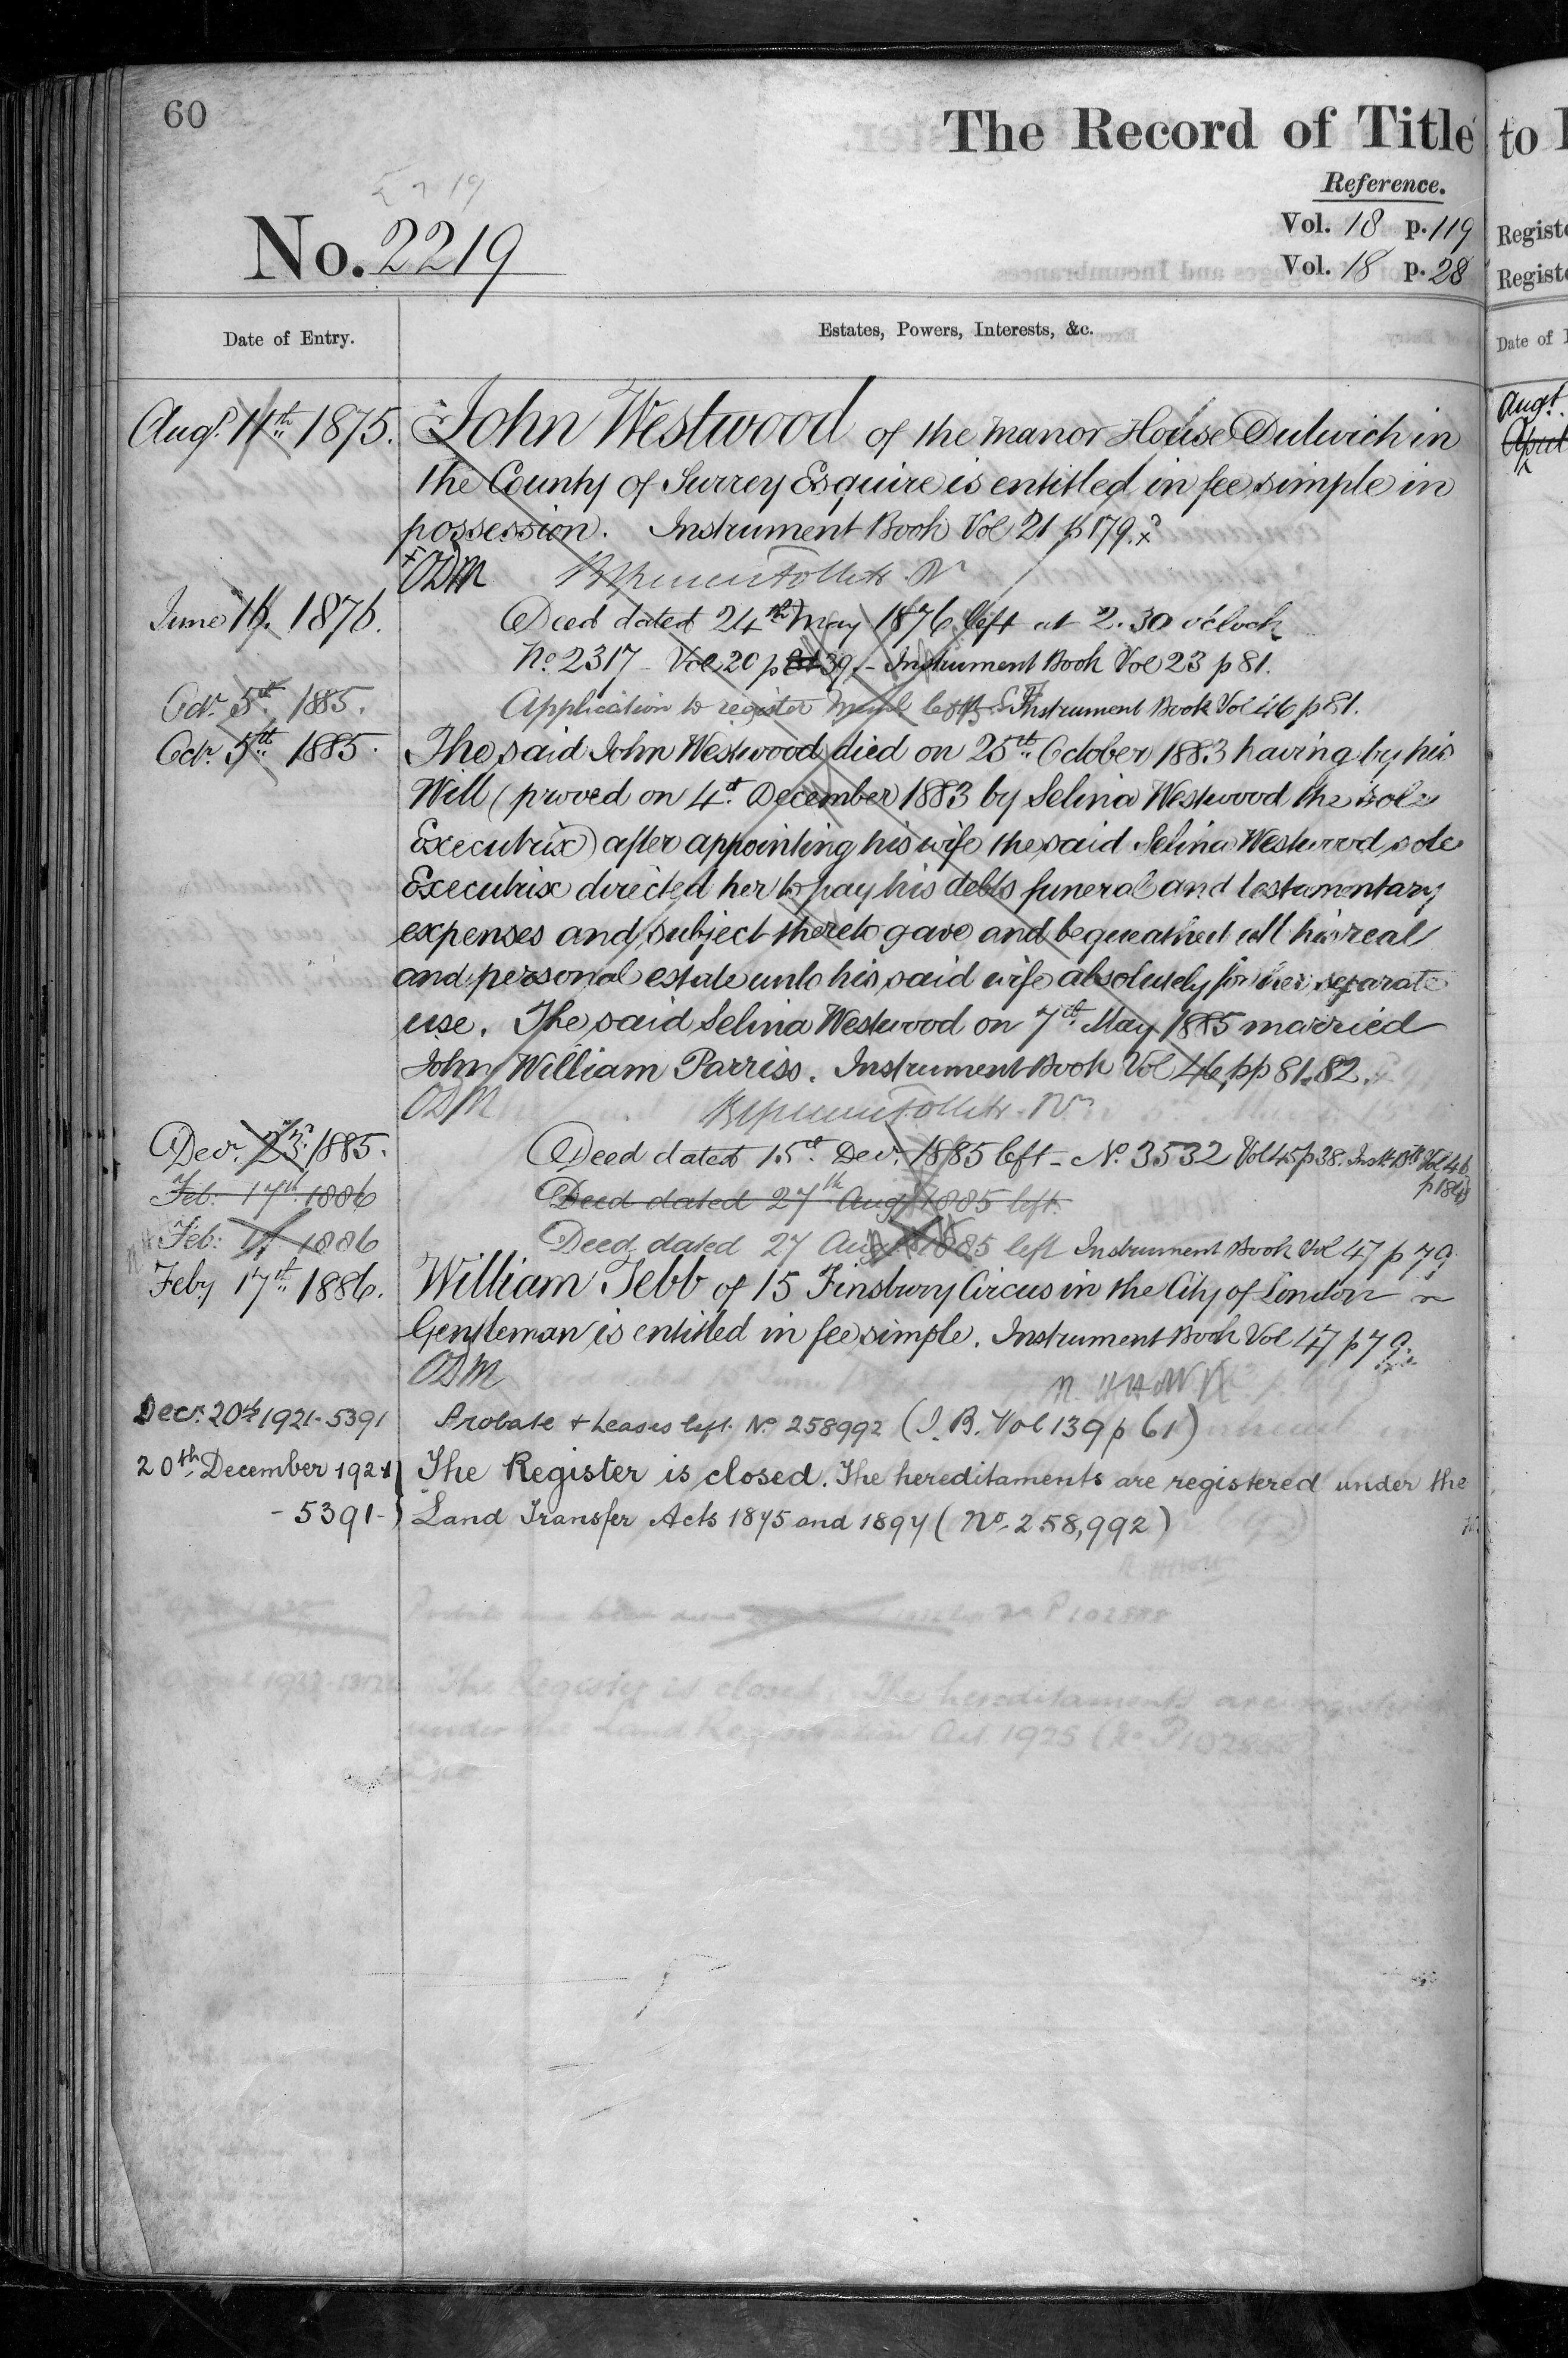 60
The Record of Title
Reference.
No. 2219
Vol. 18 p. 119
Vol. 18 p. 28
Date of Entry.
Estates, Powers, Interests, &c.
Augt. 11th 1875. John Westwood of the Manor House Dulwich in
the County of Surrey Esquire is entitled in fee simple in
possession. Instrument Book Vol 21 p 179.
ODM
June 16. 1876. Deed dated 24th May 1876 left at 2.30 o'clock
No 2317 - Vol 20 p 39 - Instrument Book Vol 23 p 81.
Octr. 5th 1885. Application to register left Instrument Book Vol 46 p 81.
Octr. 5th 1885. The said John Westwood died on 25th October 1883 having by his
Will (proved on 4th December 1883 by Selina Westwood the sole
Executrix) after appointing his wife the said Selina Westwood sole
Executrix directed her to pay his debts funeral and testamentary
expenses and subject thereto gave and bequeathed all his real
and personal estate unto his said wife absolutely for her separate
use. The said Selina Westwood on 7th May 1885 married
John William Parriss. Instrument Book Vol 46 pp 81.82.
ODM
Decr. 23rd 1885. Deed dated 15th Decr. 1885 left - No. 3532 Vol 45 p 38. Inst. Bk Vol 46
Feb: 17th 1886 Deed dated 27th Augt 1885 left.
Feb: 17 1886 Deed dated 27 Augt 1885 left Instrument Book Vol 47 p 79
Feby 17th 1886. William Tebb of 15 Finsbury Circus in the City of London
Gentleman is entitled in fee simple. Instrument Book Vol 47 p 79.
ODM
Decr. 20th 1921 - 5391 Probate & Leases left. No. 258992 (I.B. Vol 139 p 61)
20th December 1921 The Register is closed. The hereditaments are registered under the
- 5391 - Land Transfer Acts 1875 and 1897 (No. 258,992)
to
Regist
Regist
Date of
Augt.
April